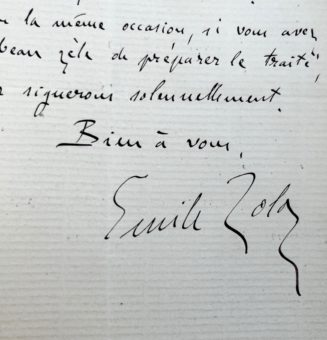 la même occasion, si vous avez
beau zèle de préparer le traité,
signerons solennellement.
Bien à vous,
Emile Zola